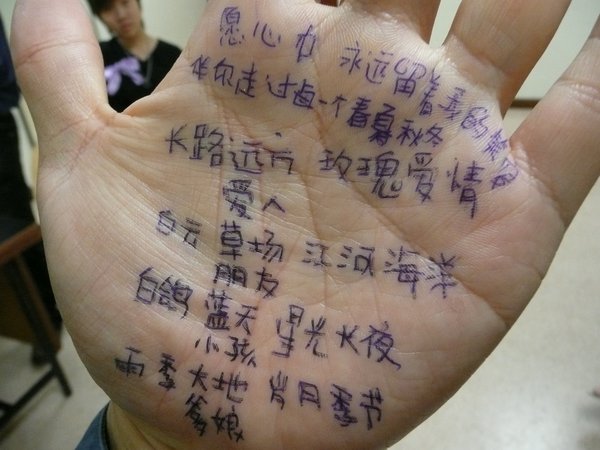 愿心中 永远留着我的笑容
伴你走过每一个春夏秋冬
长路远方 玫瑰爱情
爱人
白云 草场 江河 海洋
朋友
白鸽 蓝天 星光 长夜
小孩
雨季 大地 岁月 季节
爹娘